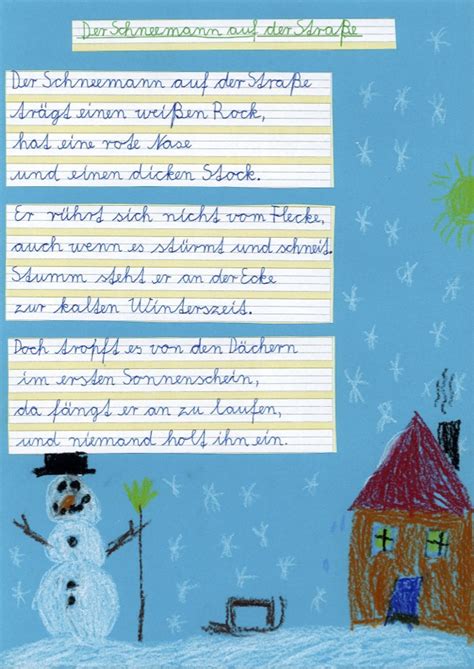 Der Schneemann auf der Straße
Der Schneemann auf der Straße
trägt einen weißen Rock,
hat eine rote Nase
und einen dicken Stock.
Er rührt sich nicht vom Flecke,
auch wenn es stürmt und schneit.
Stumm steht er an der Ecke
zur kalten Winterszeit.
Doch tropft es von den Dächern
im ersten Sonnenschein,
da fängt er an zu laufen,
und niemand holt ihn ein.